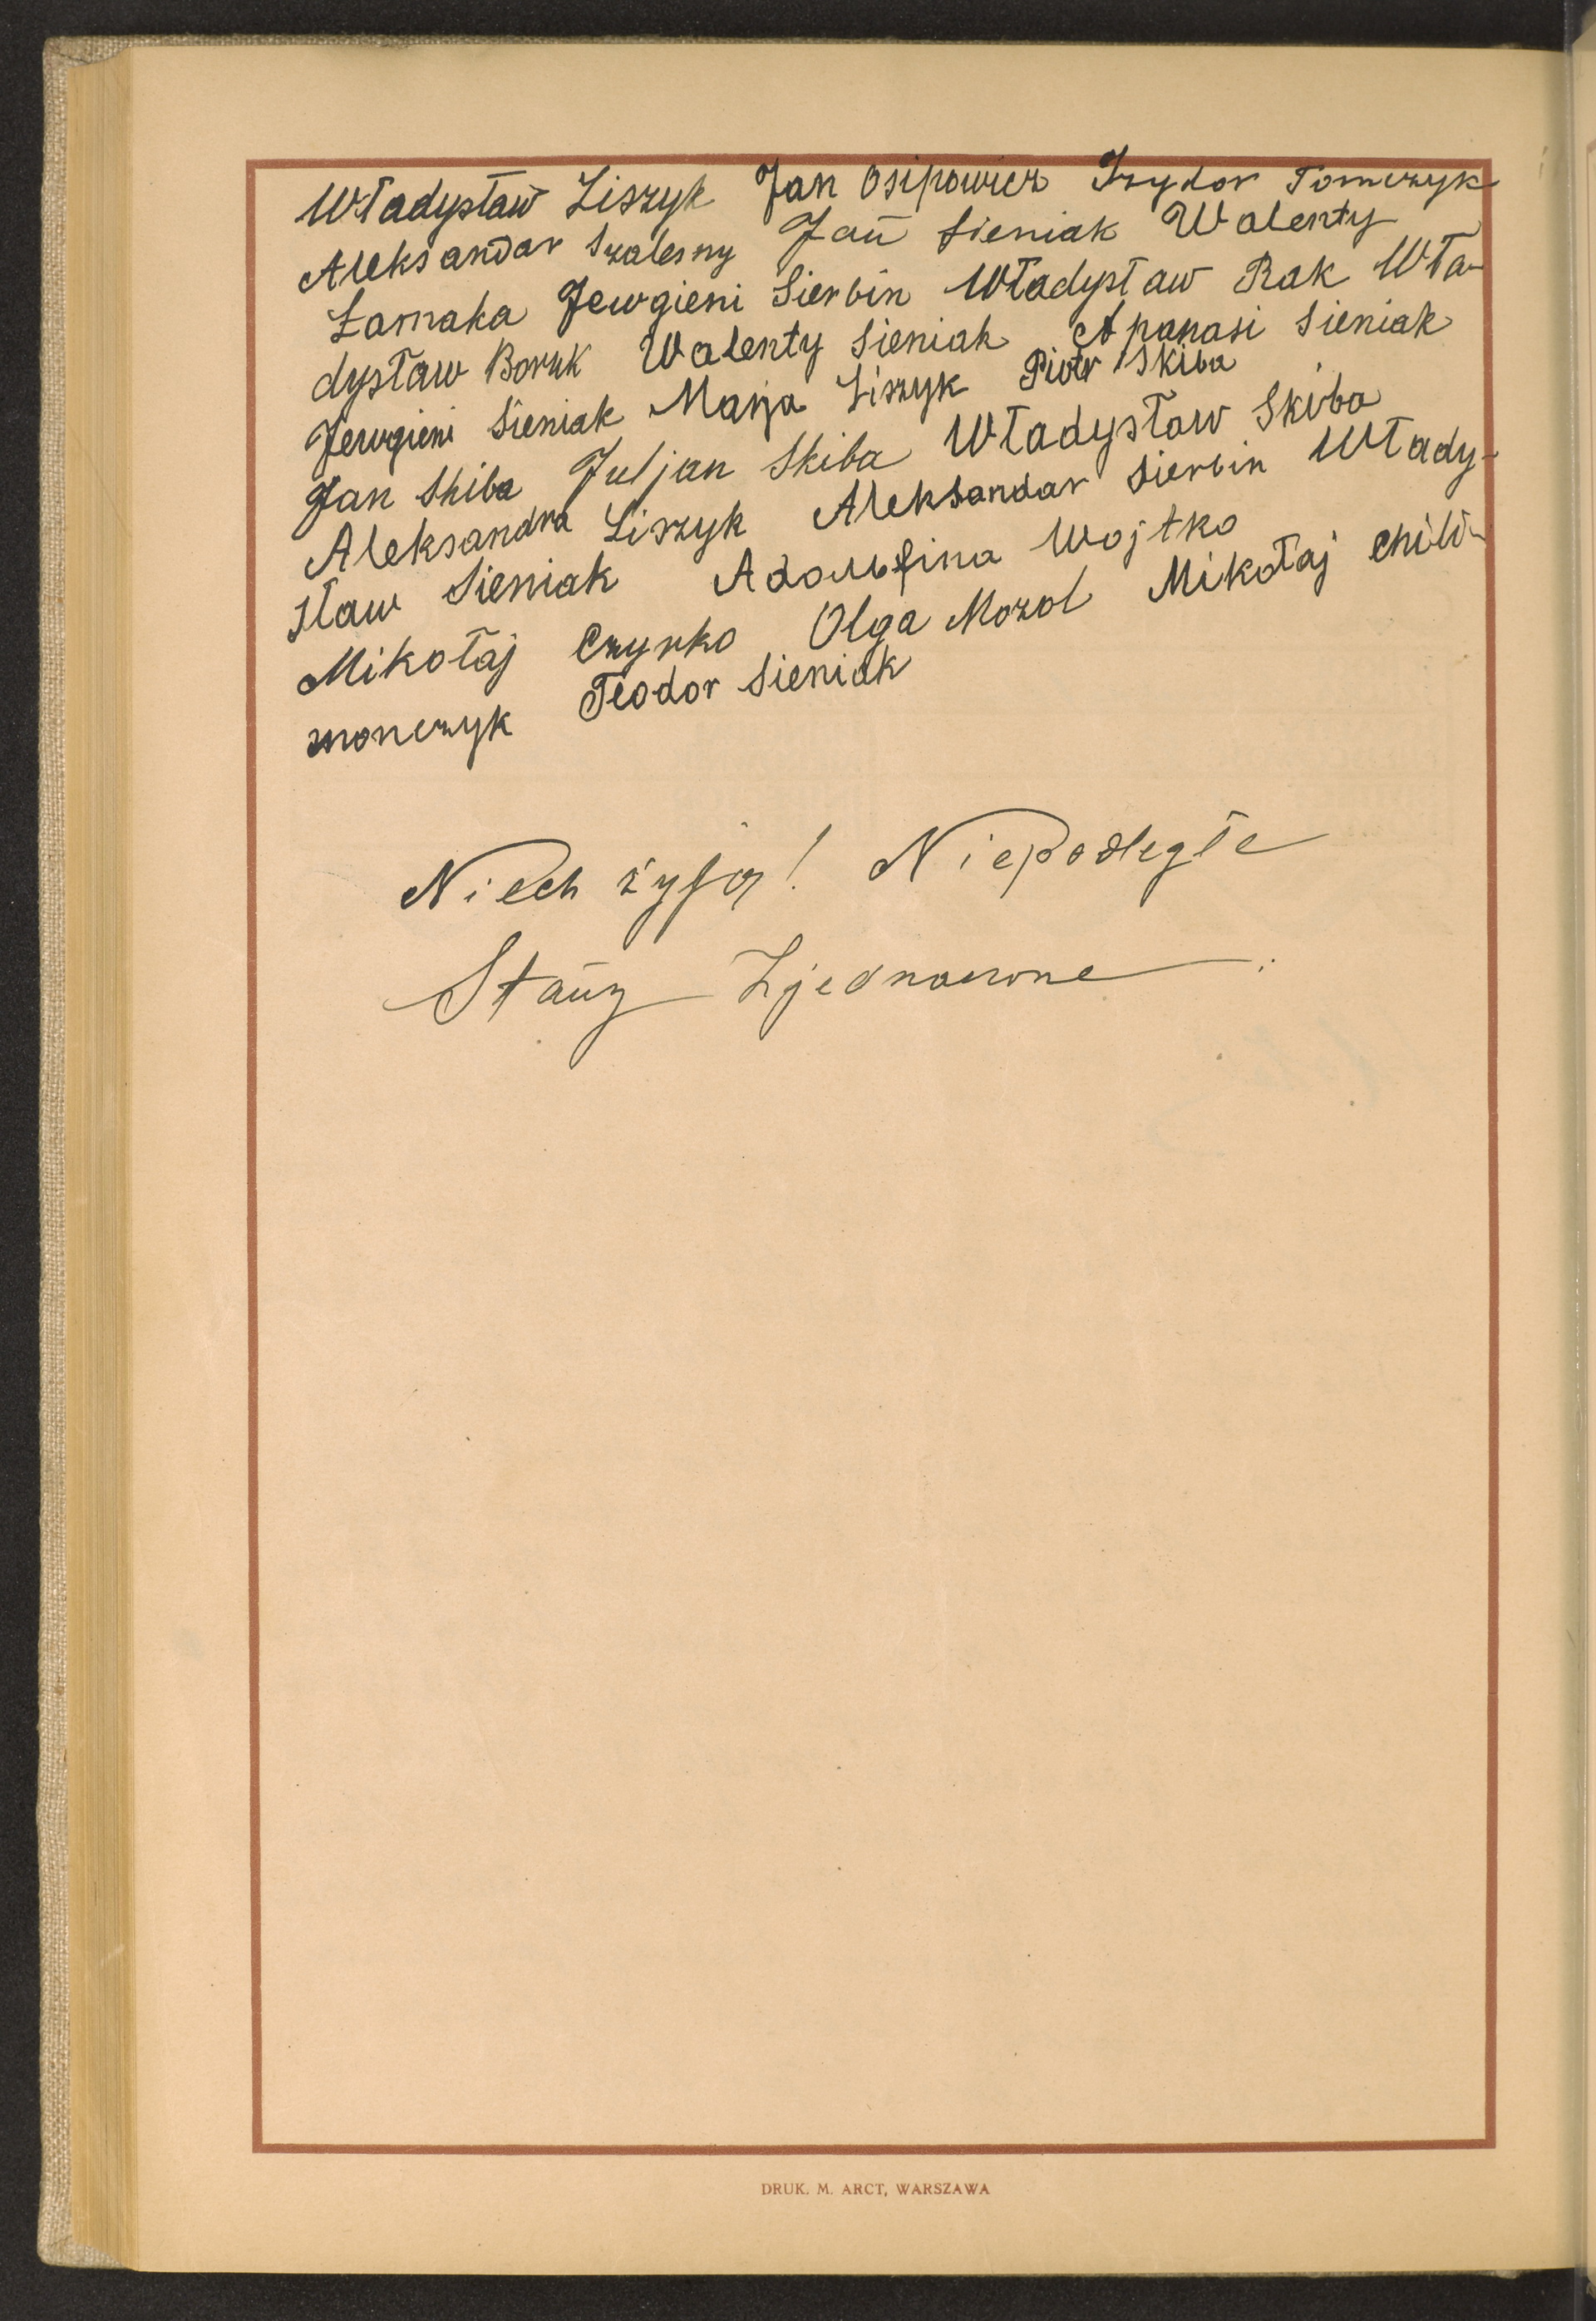 Władysław Liszyk Jan Osipowicz Izydor Tomczyk
Aleksandar Szalesny Jan Sieniak Walenty
Łamaka Jewgieni Sierbin Władysław Rak Wła-
dysław Boruk Walenty Sieniak Apanasi Sieniak
Jewgieni Sieniak Marja Liszyk Piotr Skiba
Jan Skiba Juljan Skiba Władysław Skiba
Aleksandra Liszyk Aleksandar Sierbin Wlady-
sław Sieniak Wojtko
Mikołaj Czyrko Olga Mozol Mikołaj Chili-
monczyk Teodor Sieniak
Niech żyją! Niepodległe
Stany Zjednoczone
DRUK. M. ARCT, WARSZAWA